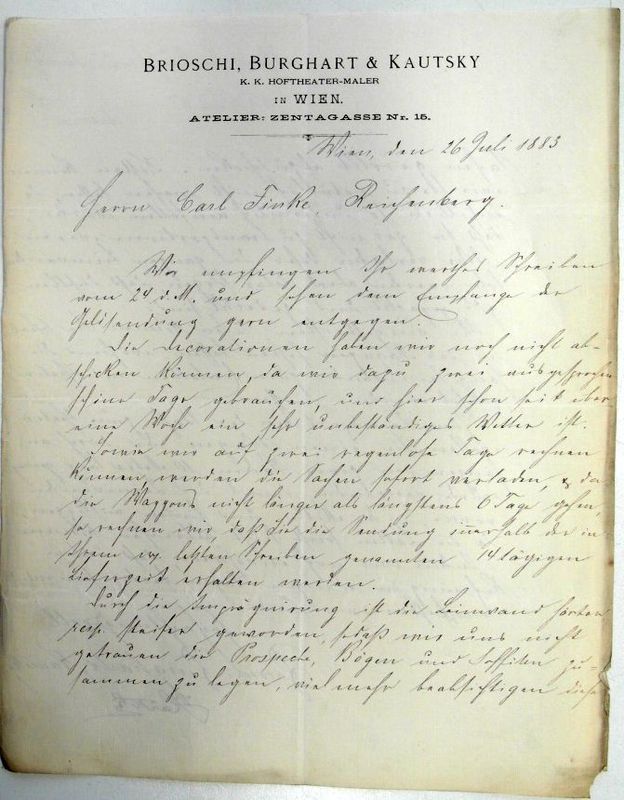 BRIOSCHI, BURGHART & KAUTSKY
K. K. HOFTHEATER-MALER
IN WIEN.
ATELIER: ZENTAGASSE Nr. 15.
Wien, den 26 Juli 1883
Herrn Carl Finke, Reichenberg.
Wir empfingen Ihr werthes Schreiben
vom 24 d. M. und sehen dem Empfange der
Geldsendung gern entgegen.
Die Decorationen haben wir noch nicht ab-
schicken können, da wir dazu zwei ausgesprochen
schöne Tage gebrauchen, und hier schon seit über
eine Woche ein sehr unbeständiges Wetter ist.
Sowie wir auf zwei regenlose Tage rechnen
können, werden die Sachen sofort verladen, & da
die Waggons nicht länger als längstens 6 Tage gehen
so rechnen wir, daß Sie die Sendung innerhalb der in
Ihrem letzten Schreiben genannten 14 tägigen
Lieferzeit erhalten werden.
Durch die Imprägnirung ist die Leinwand härter
resp. steifer geworden, sodaß wir uns nicht
getrauen die Prospecte, Bögen und Soffiten zu-
sammen zu legen, vielmehr beabsichtigen diese